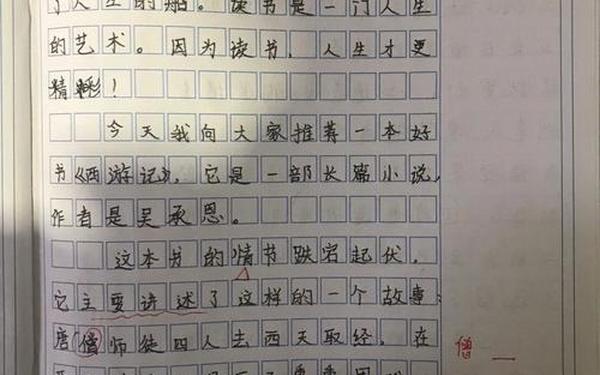 了人生的船。读书是一门人生
的艺术。因为读书，人生才更
精彩！
今天我向大家推荐一本好
书《西游记》，它是一部长篇小说，
作者是吴承恩。
这本书的情节跌宕起伏，
它主要讲述了这样的一个故事：
唐僧师徒四人去西天取经。在
僧